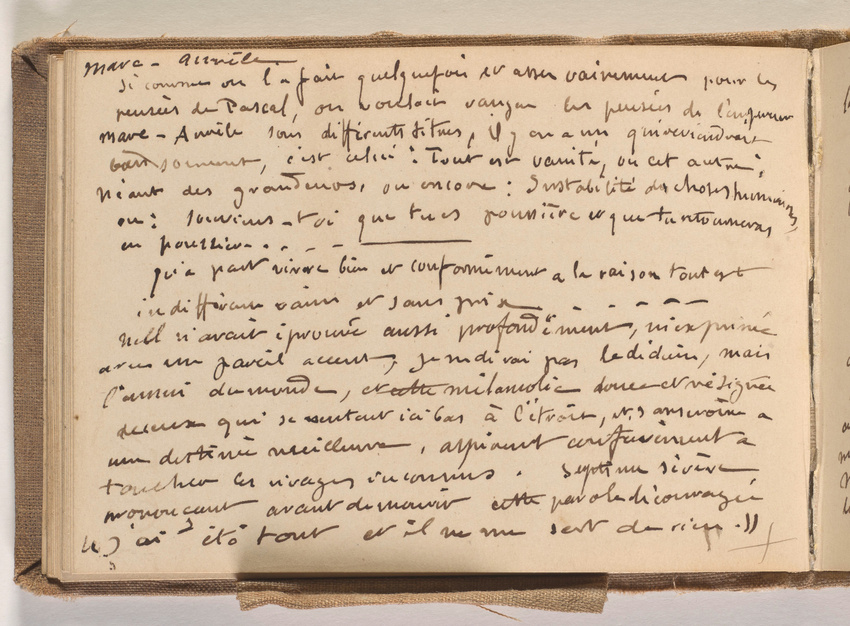 Marc - Aurèle.
Si comme on l'a fait quelquefois et assez vainement pour les
pensées de Pascal, on voulait ranger les pensées de l'empereur
Marc - Aurèle sous différents titres, il y en a un qui reviendrait
souvent, c'est celui : Tout est vanité, ou cet autre :
Néant des grandeurs, ou encore : Instabilité des choses humaines,
ou : souviens-toi que tu es poussière et que tu retourneras
en poussière. . - - -
qu'a part vivre bien et conformément a la raison tout est
indifférent vain et sans prix - - - -
Null n'avait éprouvé aussi profondément, ni exprimé
avec un pareil accent, je ne dirai pas le dédain, mais
l'ennui du monde, et cette mélancolie douce et résignée
de ceux qui se sentent ici bas à l'étroit, et sans croire a
une destinée meilleure, aspirent confusément a
toucher les rivages inconnus. Septime sévère
prononcant avant de mourir cette parole découragée
« J'ai été tout et il ne me sert de rien. »